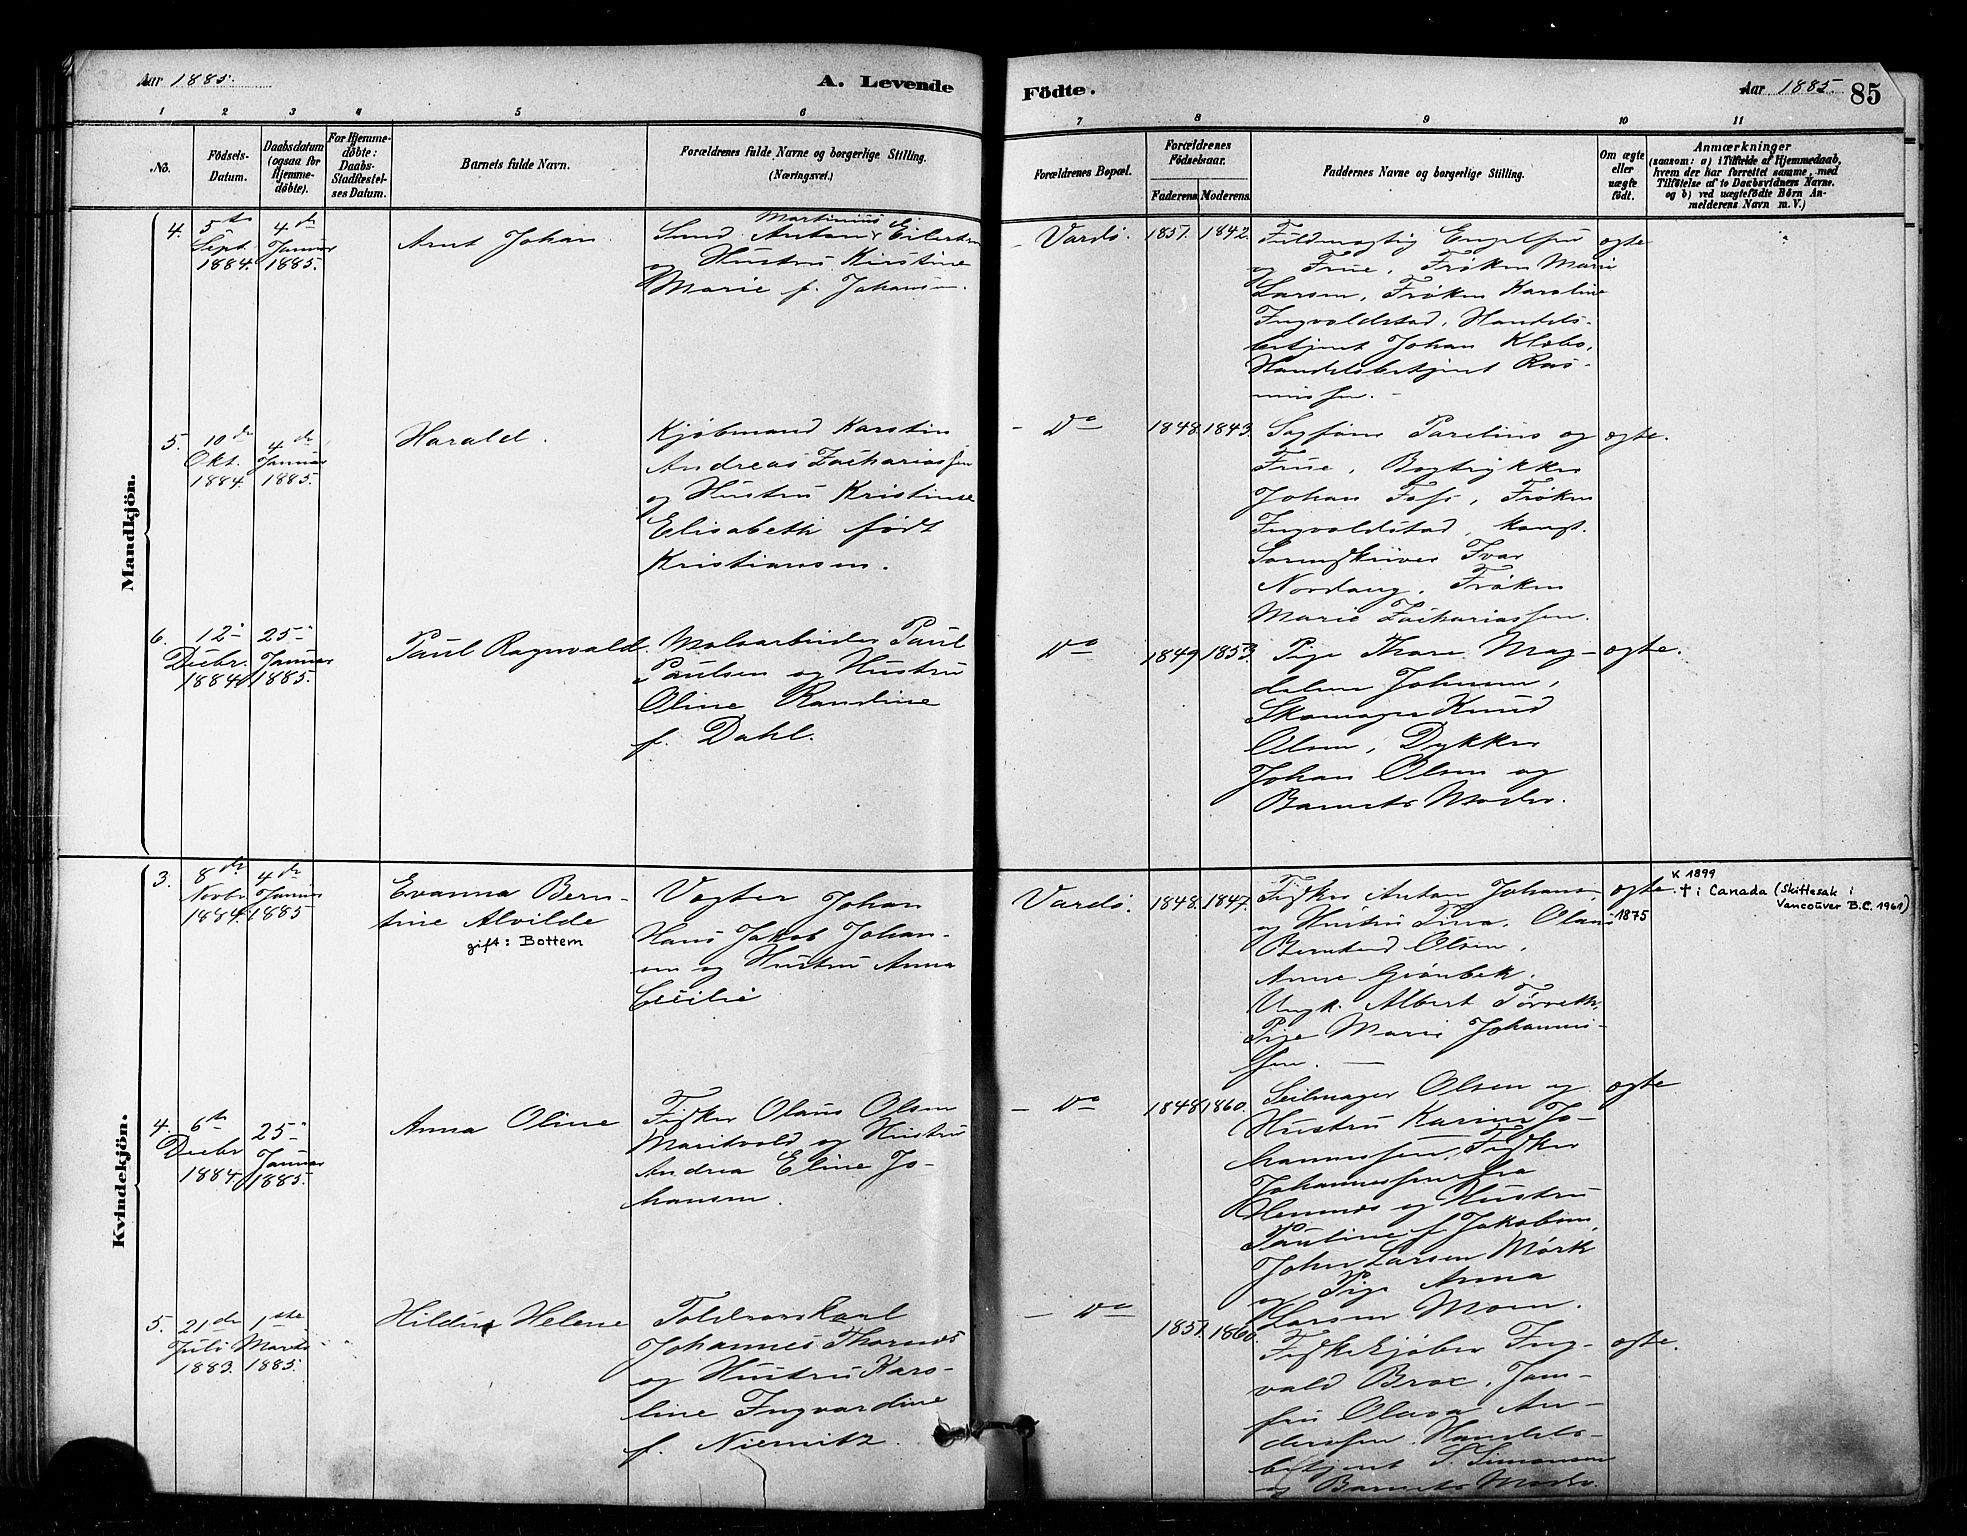 Aar 1885.
A. Levende
Födte.
Aar 1885.
85
1 2 3 4 5 6 7 8 9 10 11
No.
Födsels-
Datum.
Daabsdatum
(ogsaa for
Hjemme-
döbte).
For Hjemme-
döbte:
Daabs-
Stadfæstel-
ses Datum.
Barnets fulde Navn.
Forældrenes fulde Navne og borgerlige Stilling.
(Næringsvei.)
Forældrenes Bopæl.
Forældrenes
Födselsaar.
Faderens. Moderens.
Faddernes Navne og borgerlige Stilling.
Om ægte
eller
uægte
født.
Anmærkninger
(saasom: a) i Tilfælde af Hjemmedaab,
hvem der har forrettet samme, med
Tilføielse af to Daabsvidners Navne.
og b) ved uægtefödte Börn An-
melderens Navn m. V.)
Mandkjön.
4.
5te
Sept.
1884.
4de
Januar
1885.
Arnt Johan.
Martinius
Sund. Anton Eilertsen
og Hustru Kirstine
Marie f. Johansen.
- Vardö
1851. 1842.
Fuldmægtig
og Frue, Frøken Marie
Larsen, Frøken Karoline
Ingvoldstad, Handels-
betjent Johan Klæbo,
Handelsbetjent Ras-
mussen. -
ægte
5.
10de
Okt.
1884.
4de
Januar
1885.
Harald.
Kjøbmand Karstin
Andreas Zachariassen
og Hustru Kristine
Elisabeth født
Kristiansen.
- Do
1848. 1843.
Sagfører Parelius og
Frue, Bogtrykker
Johan Foss, Frøken
Ingvoldstad, konst.
Sorenskriver Ivar
Nordang, Frøken
Marie Zachariassen.
ægte.
6.
12-
Decbr.
1884.
25-
Januar
1885.
Paul Ragnvald.
Paul
Paulsen og Hustru
Oline Randine
f. Dahl.
Do
1849 1853.
Pige Thora Mag-
dalena Johnsen,
Skomager Knud
Olsen, Dykker
Johan Olsen og
Barnets Moder.
ægte.
Kvindekjön.
3.
8de
Novbr
1884.
4de
Januar
1885
Evanna Bern-
tine Alvilde
gift: Bottem
Vægter Johan
Hans Jakob Johan-
sen og Hustru Anna
Cecilie
Vardö.
1848. 1847.
Fisker Anton Johansen
og Hustru Tina, Olaus
Berntend Olsen,
Anne Grönbek.
Ungk. Albert
Pige Marie Johannes-
sen. -
ægte.
1875
K 1899
✝ i Canada (Skiftesak i
Vancouver B.C. 1961)
4.
6te
Decbr
1884.
25-
Januar
1885.
Anna Oline
Fisker Olaus Olsen
Maritvold og Hustru
Andrea Eline Jo-
hansen.
- Do
1848 1860.
Seilmager Olsen og
Hustru Karina Jo-
hannessen, Fisker
Johannessen fra
Hemnæs og Hustru
Pauline f. Jakobsen,
John Larsen Mörk
og Pige Anna
Larsen Moen.
ægte
5.
21de
Juli
1883.
1ste
Marts
1885.
Hildur Helene
Johannes Thornæs
og Hustru Karo-
line Ingvardine
f. Niemitz.
- Do
1851. 1860.
Fiskekjøber Ing-
vald Broc, Jom-
fru Olava An-
dersen, Handels-
betjent S. Simonsen
og Barnets Moder.
ægte.